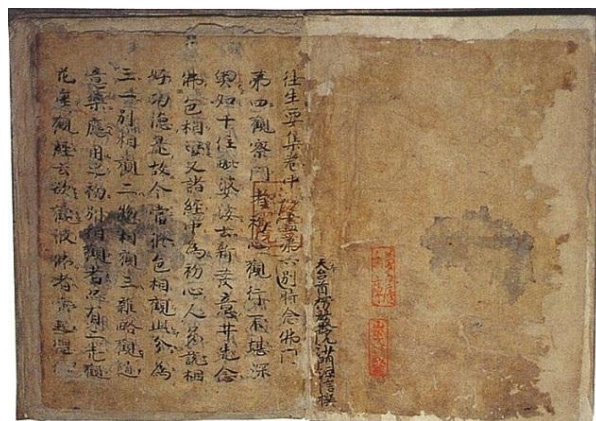 往生要集卷中 盡第六別時念佛門
天台首楞嚴院沙門源信撰
第四觀察門者初心觀行不堪深
奧如十住毗婆沙云新發意井先念
佛色相又諸經中為初心人多說相
好功德是故今當修色相觀此分為
三一別相觀二惣相觀三雜略觀隨
意樂應用之初別相觀者亦有二先觀
花座觀經云欲觀彼佛者當起想